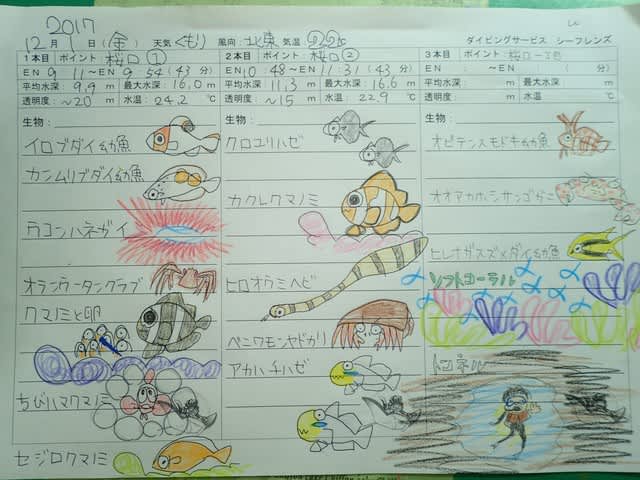 2017
12月1日(金) 天気 くもり 風向:北東 気温 22℃ ダイビングサービス シーフレンズ
1本目 ポイント:桜口①
EN 9:11～EN 9:54(43分)
平均水深:9.9m 最大水深:16.0m
透明度:～20m 水温:24.2℃
生物:
イロブダイ幼魚
カンムリブダイ幼魚
ウコンハネガイ
オランウータンクラブ
クマノミと卵
ちびハマクマノミ
セジロクマノミ
2本目 ポイント:桜口②
EN 10:48～EN 11:31(43分)
平均水深:11.3m 最大水深:16.6m
透明度:～15m 水温:22.9℃
生物:
クロユリハゼ
カクレクマノミ
ヒロオウミヘビ
ベニワモンヤドカリ
アカハチハゼ
3本目 ポイント:桜口
EN :～EN :(分)
平均水深:m 最大水深:m
透明度:m 水温:℃
生物:
オビテンスモドキ幼魚
オオアカホシサンゴガニ
ヒレナガスズメダイ幼魚
ソフトコーラル
トンネル